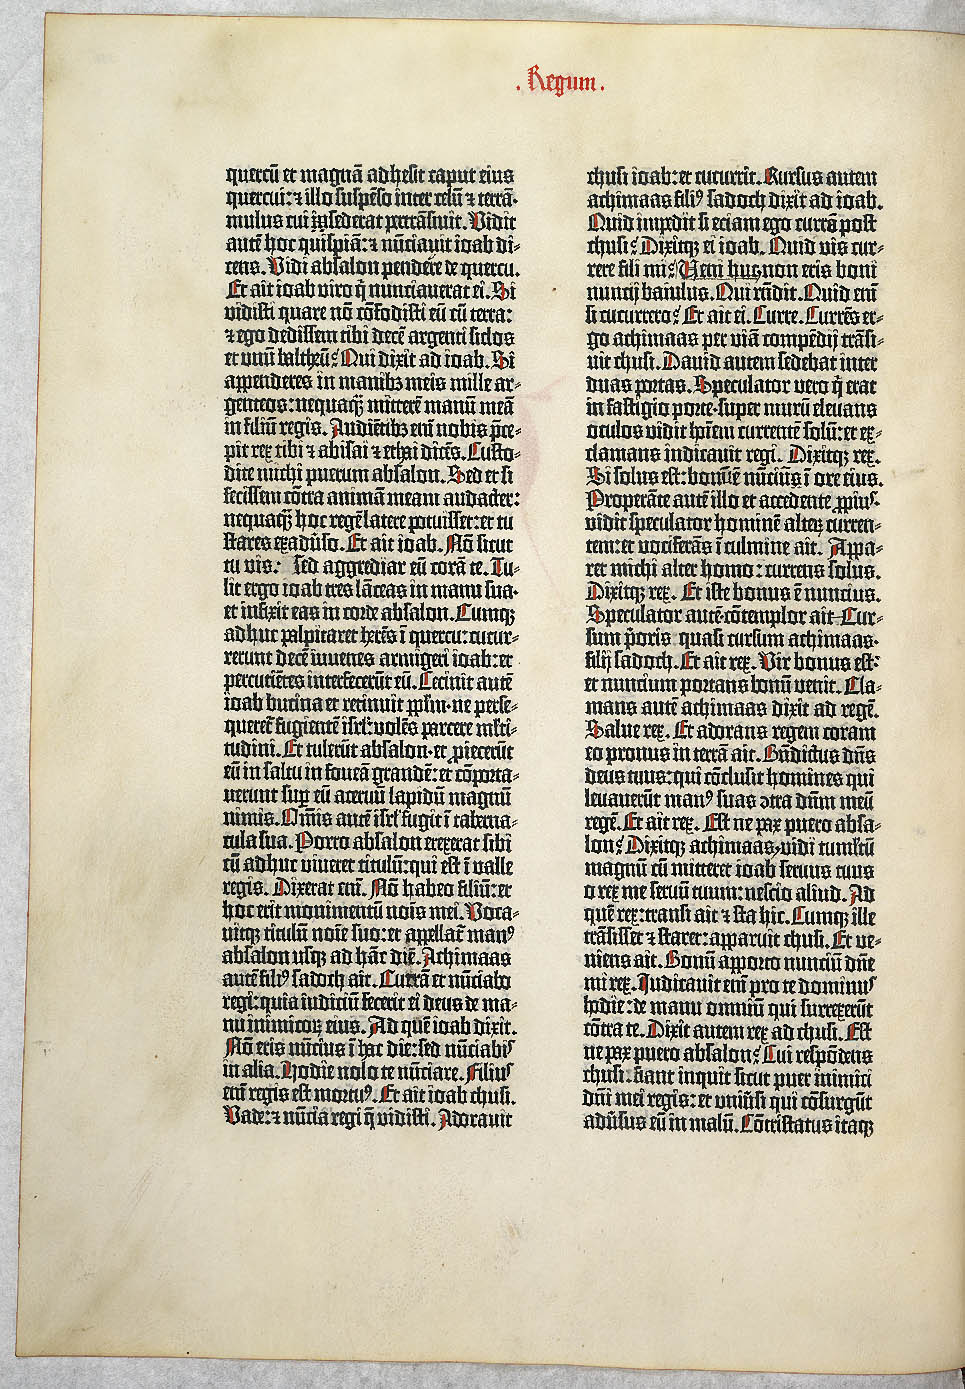 . Regum .
quercū et magnā adhesit caput eius
quercui: ⁊ illo suspēso inter celū ⁊ terrā·
mulus cui īsederat pertrāsiuit. Vidit
autē hoc quispiā: ⁊ nūciauit ioab di-
cens. Vidi absalon pendere de quercu.
Et ait ioab viro q̄ nunciauerat ei. Si
vidisti quare nō cōfodisti eū cū terra:
⁊ ego dedissem tibi decē argenti siclos
et unū baltheū? Qui dixit ad ioab. Si
appenderes in manibꝫ meis mille ar-
genteos: nequaq̄ mitterē manū meā
in filiū regis. Audiētibꝫ eni nobis p̄ce-
pit rex tibi ⁊ abisai ⁊ ethai dicēs. Custo-
dite michi puerum absalon. Sed et si
fecissem cōtra animā meam audacter:
nequaq̄ hoc regē latere potuisset: et tu
stares ex adūso. Et ait ioab. Nō sicut
tu vis: sed aggrediar eū corā te. Tu-
lit ergo ioab tres lāceas in manu sua·
et infixit eas in corde absalon. Cumqꝫ
adhuc palpitaret herēs ī quercu: cucur-
rerunt decē iuuenes armigeri ioab: et
percutiētes interfecerūt eū. Cecinit autē
ioab bucina et retinuit ppl̄m· ne perse-
queret̄ fugientē isrl̄: volēs parcere ml̄ti-
tudini. Et tulerūt absalon· et ꝓiecerūt
eū in saltu in foueā grandē: et cōporta-
uerunt sup̄ eū aceruū lapidū magnū
nimis. Om̄is autē isrl̄ fugit ī taberna-
cula sua. Porro absalon erexerat sibi
cū adhuc viueret titulū: qui est ī valle
regis. Dixerat eni. Nō habeo filiū: et
hoc erit monimentū nois mei. Voca-
uitqꝫ titulū noie suo: et appellat̄ manꝰ
absalon usqꝫ ad hāc diē. Achimaas
autē filiꝰ sadoch ait. Currā et nūciabo
regi: quia iudiciū fecerit ei deus de ma-
nu inimicoꝝ eius. Ad quē ioab dixit.
Nō eris nūcius ī hac die: sed nūciabis
in alia. Hodie nolo te nūciare. Filius
eni regis est mortuꝰ. Et ait ioab chusi.
Vade: ⁊ nūcia regi q̄ vidisti. Adorauit
chusi ioab: et cucurrit. Rursus autem
achimaas filiꝰ sadoch dixit ad ioab.
Quid impedit si eciam ego currā post
chusi? Dixitqꝫ ei ioab. Quid vis cur-
rere fili mi? Veni huc non eris boni
nuncij baiulus. Qui rn̄dit. Quid eni
si cucurrero? Et ait ei. Curre. Currēs er-
go achimaas per viā compēdij trāsi-
uit chusi. Dauid autem sedebat inter
duas portas. Speculator vero q̄ erat
in fastigio porte· super murū eleuans
oculos vidit hoi̅em currentē solū: et ex-
clamans indicauit regi. Dixitqꝫ rex.
Si solus est: bonus ē nūcius ī ore eius.
Properāte autē illo et accedente ꝓpius·
vidit speculator hominē alteꝝ curren-
tem: et vociferās ī culmine ait. Appa-
ret michi alter homo: currens solus.
Dixitqꝫ rex. Et iste bonus ē nuncius.
Speculator autē· cōtemplor ait Cur-
sum p̄oris quasi cursum achimaas·
filij sadoch. Et ait rex. Vir bonus est:
et nuncium portans bonū venit. Cla-
mans autē achimaas dixit ad regē.
Salue rex. Et adorans regem coram
eo pronus in terrā ait. Bn̄dictus dn̄s
deus tuus: qui cōclusit homines qui
leuauerūt manꝰ suas ↄtra dn̄m meū
regē. Et ait rex. Est ne pax puero absa-
lon? Dixitqꝫ achimaas, vidi tumltū
magnū cū mitteret ioab seruus tuus
o rex me seruū tuum: nescio aliud. Ad
quē rex: transi ait ⁊ sta hic. Cumqꝫ ille
trāsisset ⁊ staret: apparuit chusi. Et ve-
niens ait. Bonū apporto nunciū dn̄e
mi rex. Iudicauit eni pro te dominus
hodie: de manu omniū qui surrexerūt
cōtra te. Dixit autem rex ad chusi. Est
ne pax puero absalon? Cui respōdens
chusi. fiant inquit sicut puer inimici
dn̄i mei regis: et uniūsi qui cōsurgūt
adūsus eū in malū. Cōtristatus itaqꝫ